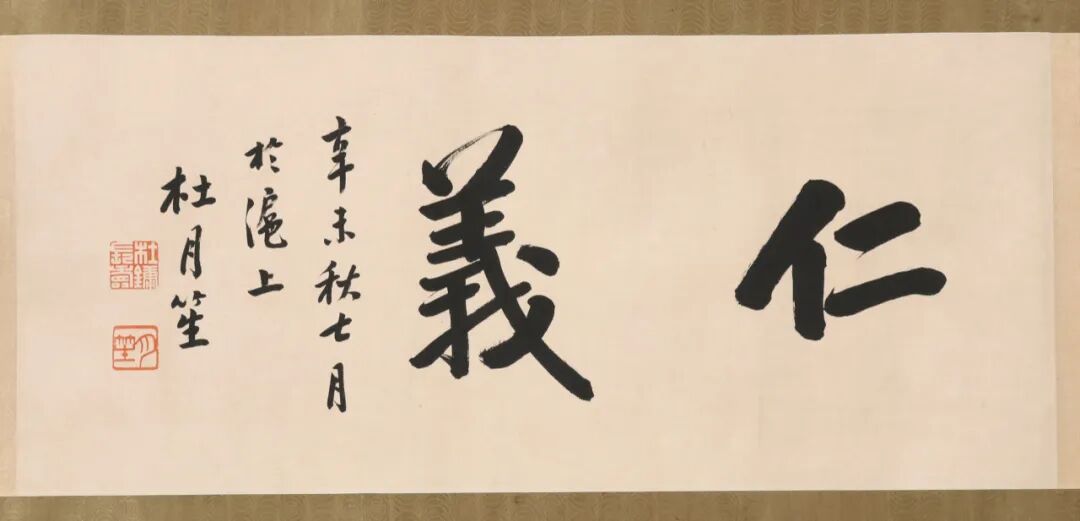 仁義
辛未秋七月
於滬上
杜月笙
杜鏞
月笙